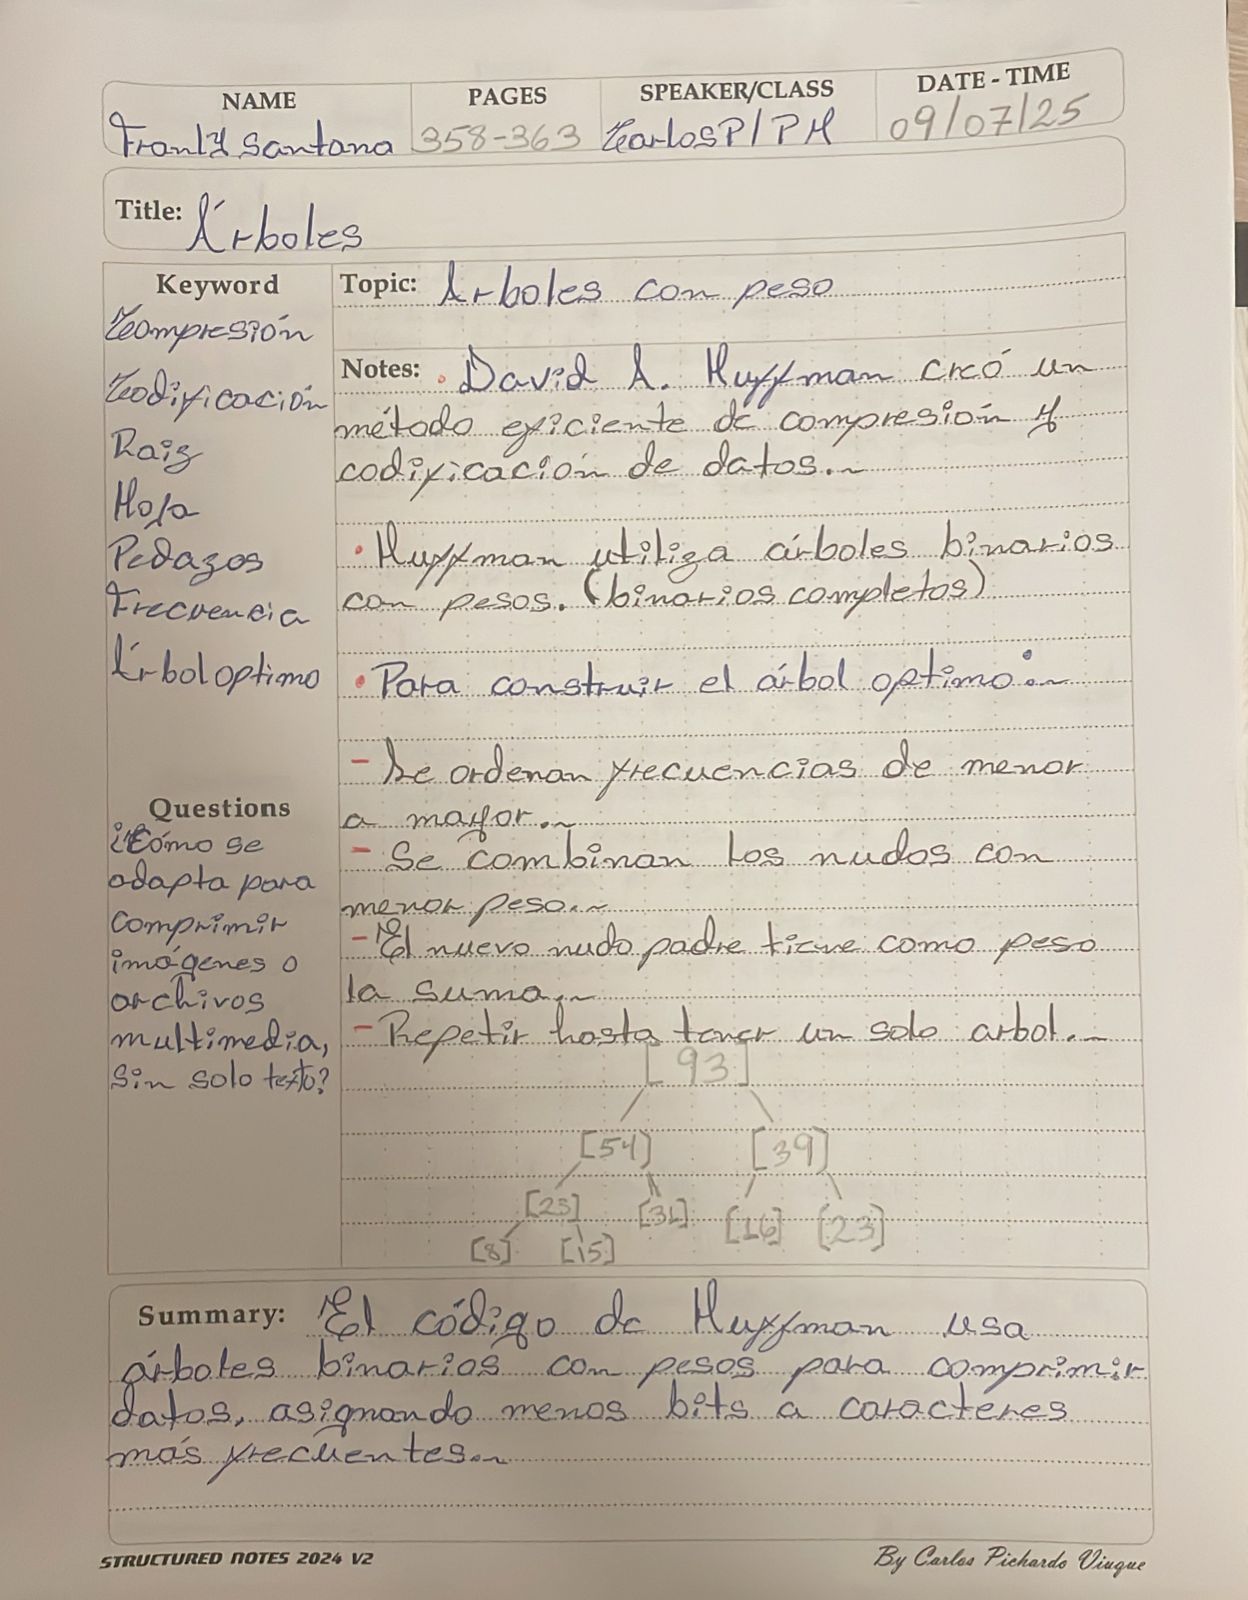 NAME
PAGES
SPEAKER/CLASS
DATE - TIME
Franly Santana
358-363
Carlos P/PH
09/07/25
Title: Árboles
Keyword
Compresión
Codificación
Raiz
Hoja
Pedazos
Frecuencia
Árbol optimo
Questions
¿Cómo se
adapta para
comprimir
imágenes o
archivos
multimedia,
sin solo texto?
Topic: Arboles con peso
Notes: • David A. Huffman creó un
método eficiente de compresión y
codificación de datos.
• Huffman utiliza árboles binarios
con pesos. (binarios completos)
• Para construir el árbol optimo:
- Se ordenan frecuencias de menor
a mayor.
- Se combinan los nudos con
menor peso.
- El nuevo nudo padre tiene como peso
la suma.
- Repetir hasta tener un solo arbol.
[93]
[54] [39]
[23] [31] [16] [23]
[8] [15]
Summary: El código de Huffman usa
árboles binarios con pesos para comprimir
datos, asignando menos bits a caracteres
más frecuentes.
STRUCTURED NOTES 2024 V2
By Carlos Pichardo Viuque